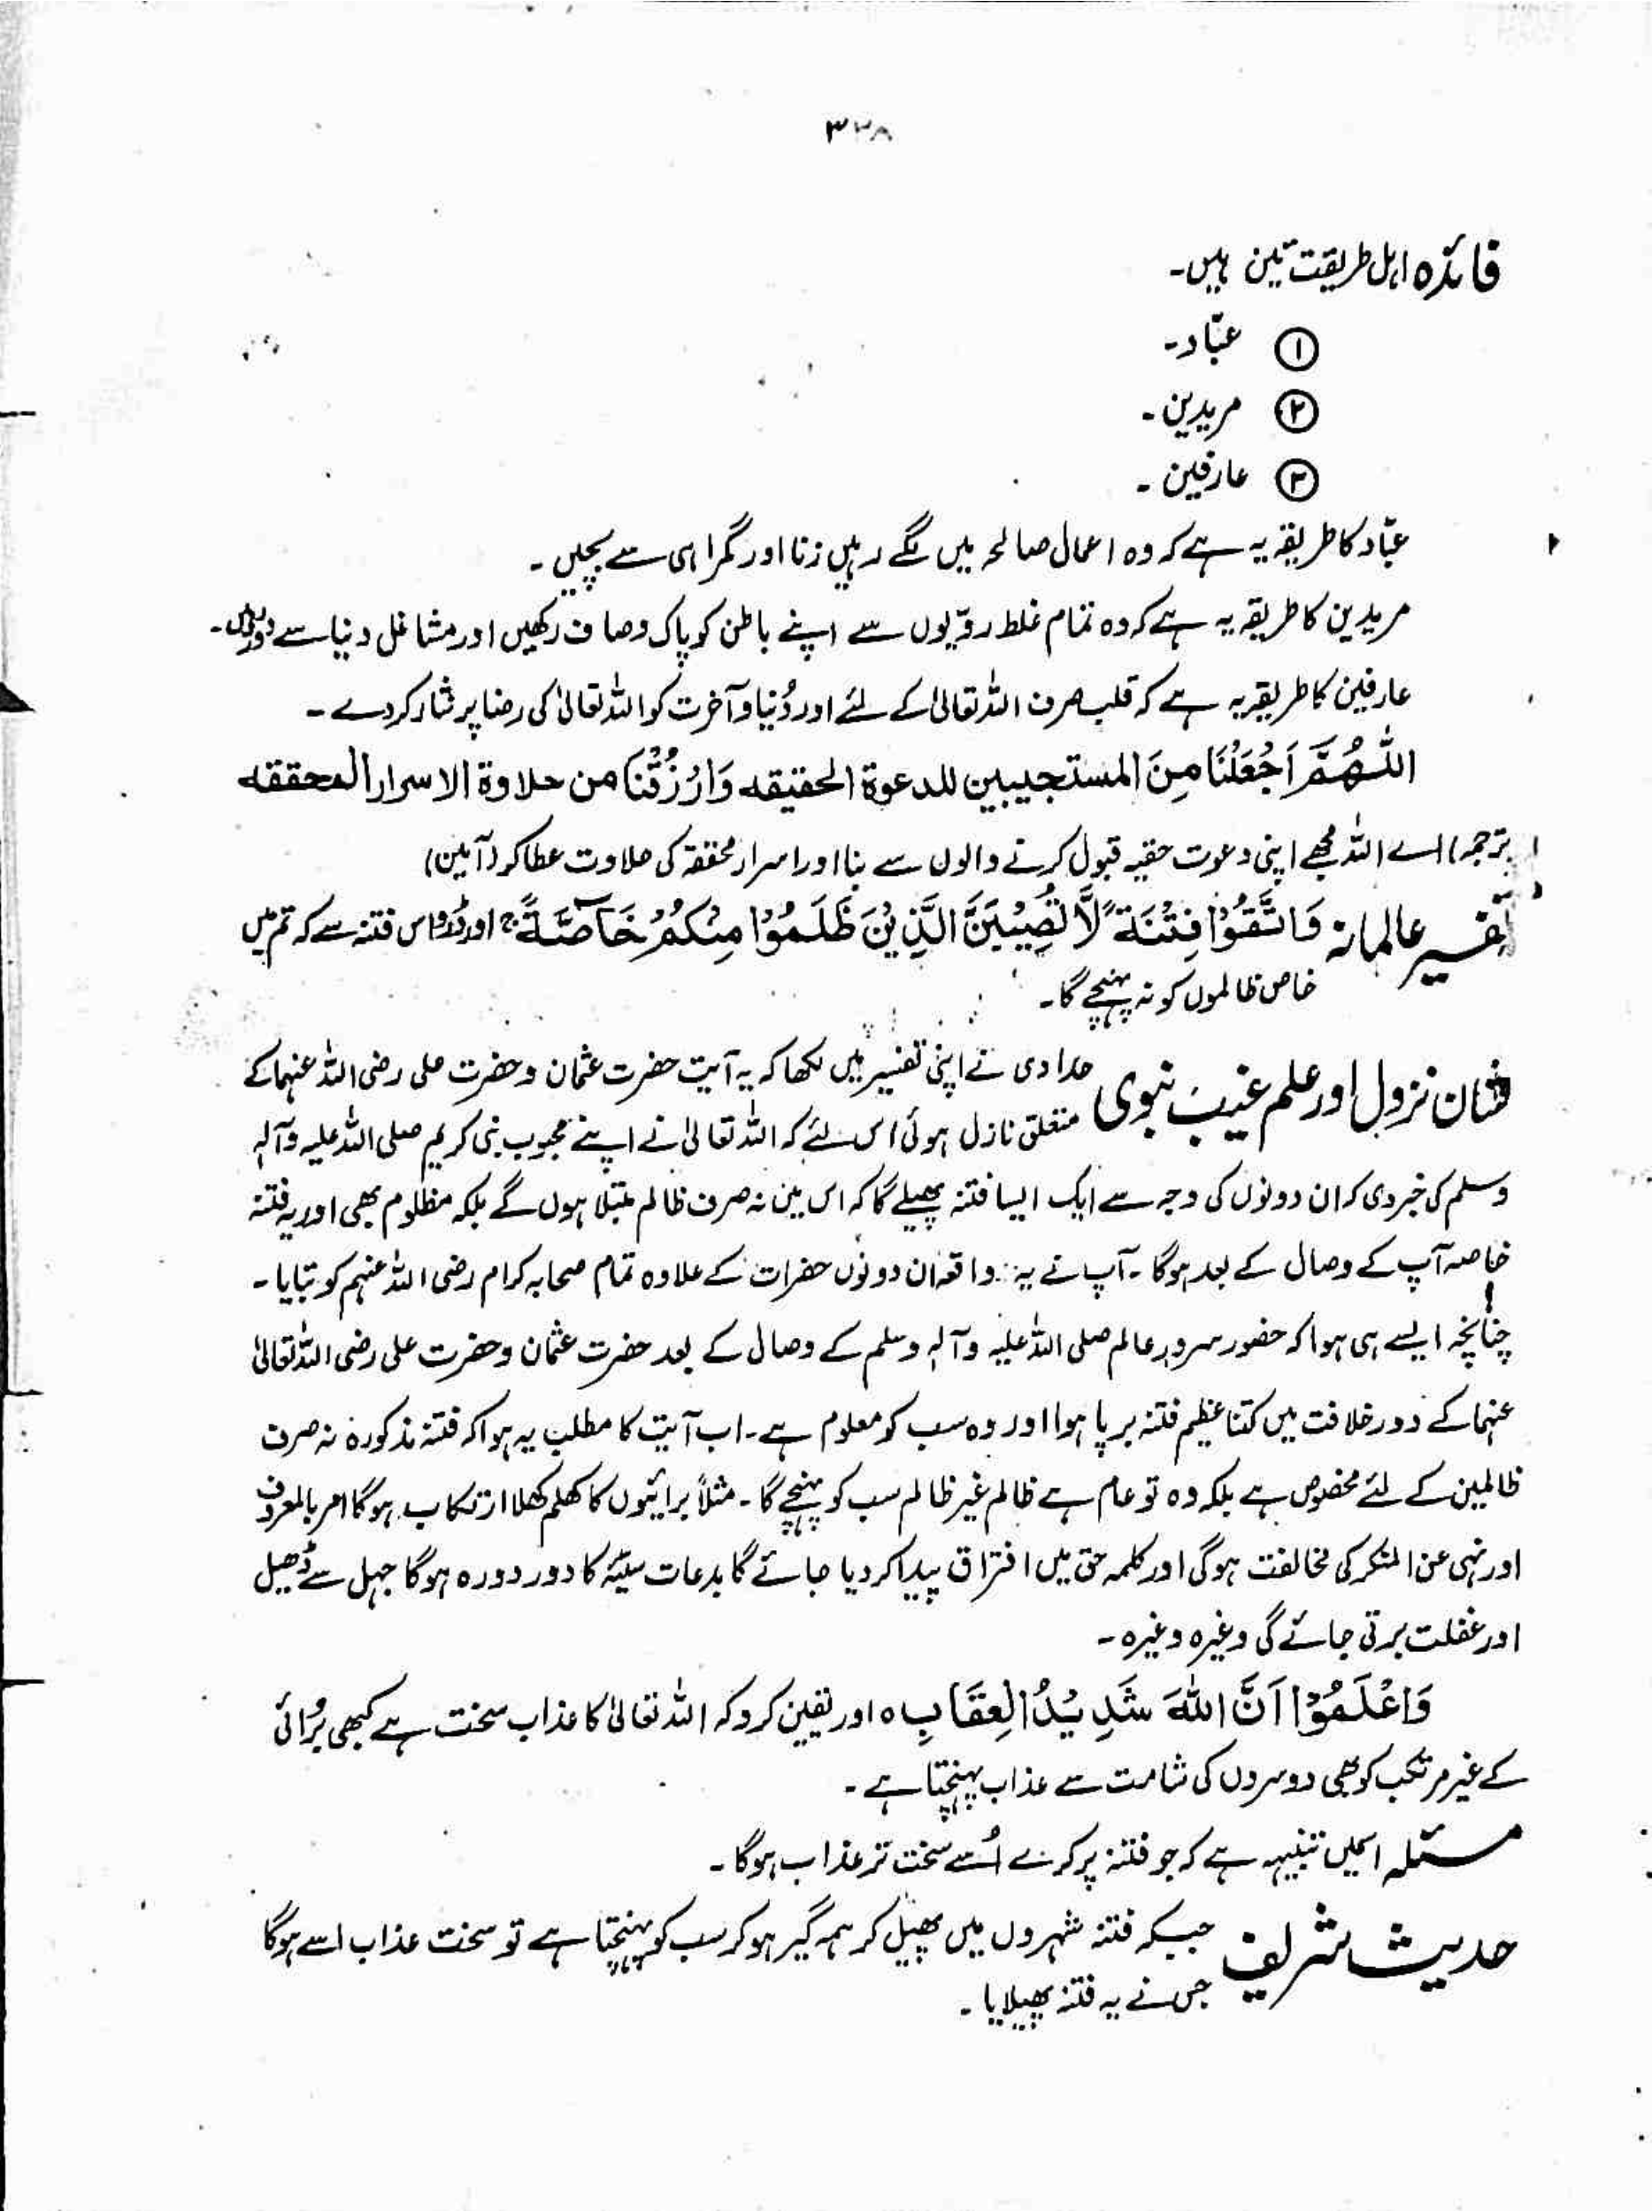 ۳۲۸
فائدہ اہل طریقت تین ہیں۔
① عبّاد۔
② مریدین۔
③ عارفین۔
عبّاد کا طریقہ یہ ہے کہ وہ اعمال صالحہ میں لگے رہیں زنا اور گمراہی سے بچیں۔
مریدین کا طریقہ یہ ہے کہ وہ تمام غلط روّیوں سے اپنے باطن کو پاک و صاف رکھیں اور مشاغل دنیا سے دور رہیں۔
عارفین کا طریقہ یہ ہے کہ قلب صرف اللہ تعالیٰ کے لئے اور دُنیا و آخرت کو اللہ تعالیٰ کی رضا پر نثار کر دے۔
اللّٰهُمَّ اَجْعَلْنَا مِنَ المستجیبین للدعوة الحقیقه وَارْزُقْنَا من حلاوة الاسرار المحققه
ترجمہ) اے اللہ مجھے اپنی دعوت حقیہ قبول کرنے والوں سے بنا اور اسرار محققہ کی حلاوت عطا کر (آمین)
تفسیر عالمانہ وَاتَّقُوْا فِتْنَةً لَّا تُصِیْبَنَّ الَّذِیْنَ ظَلَمُوْا مِنْكُمْ خَآصَّةً ج اور ڈرو اس فتنہ سے کہ تم میں
خاص ظالموں کو نہ پہنچے گا۔
شان نزول اور علم غیب نبوی حدادی نے اپنی تفسیر میں لکھا کہ یہ آیت حضرت عثمان و حضرت علی رضی اللہ عنہما کے
متعلق نازل ہوئی اس لئے کہ اللہ تعالیٰ نے اپنے محبوب نبی کریم صلی اللہ علیہ وآلہ
وسلم کی خبر دی کہ ان دونوں کی وجہ سے ایک ایسا فتنہ پھیلے گا کہ اس میں نہ صرف ظالم مبتلا ہوں گے بلکہ مظلوم بھی اور یہ فتنہ
خاصہ آپ کے وصال کے بعد ہوگا۔ آپ نے یہ واقعہ ان دونوں حضرات کے علاوہ تمام صحابہ کرام رضی اللہ عنہم کو بتایا۔
چنانچہ ایسے ہی ہوا کہ حضور سرورِ عالم صلی اللہ علیہ وآلہ وسلم کے وصال کے بعد حضرت عثمان و حضرت علی رضی اللہ تعالیٰ
عنہما کے دور خلافت میں کتنا عظیم فتنہ برپا ہوا اور وہ سب کو معلوم ہے۔ اب آیت کا مطلب یہ ہوا کہ فتنہ مذکورہ نہ صرف
ظالمین کے لئے مخصوص ہے بلکہ وہ تو عام ہے ظالم غیر ظالم سب کو پہنچے گا۔ مثلاً برائیوں کا کھلم کھلا ارتکاب ہوگا امر بالمعروف
اور نہی عن المنکر کی مخالفت ہوگی اور کلمہ حق میں افتراق پیدا کر دیا جائے گا بدعات سیّئہ کا دور دورہ ہوگا جہل سے ڈھیل
اور غفلت برتی جائے گی وغیرہ وغیرہ۔
وَاعْلَمُوْٓا اَنَّ اللّٰهَ شَدِیْدُ الْعِقَابِ ہ اور یقین کرو کہ اللہ تعالیٰ کا عذاب سخت ہے کبھی بُرائی
کے غیر مرتکب کو بھی دوسروں کی شامت سے عذاب پہنچتا ہے۔
مسئلہ اسمیں تنبیہہ ہے کہ جو فتنہ پر کرے اُسے سخت تر عذاب ہوگا۔
حدیث شریف جبکہ فتنہ شہروں میں پھیل کر ہمہ گیر ہو کر سب کو پہنچتا ہے تو سخت عذاب اسے ہوگا
جس نے یہ فتنہ پھیلایا۔